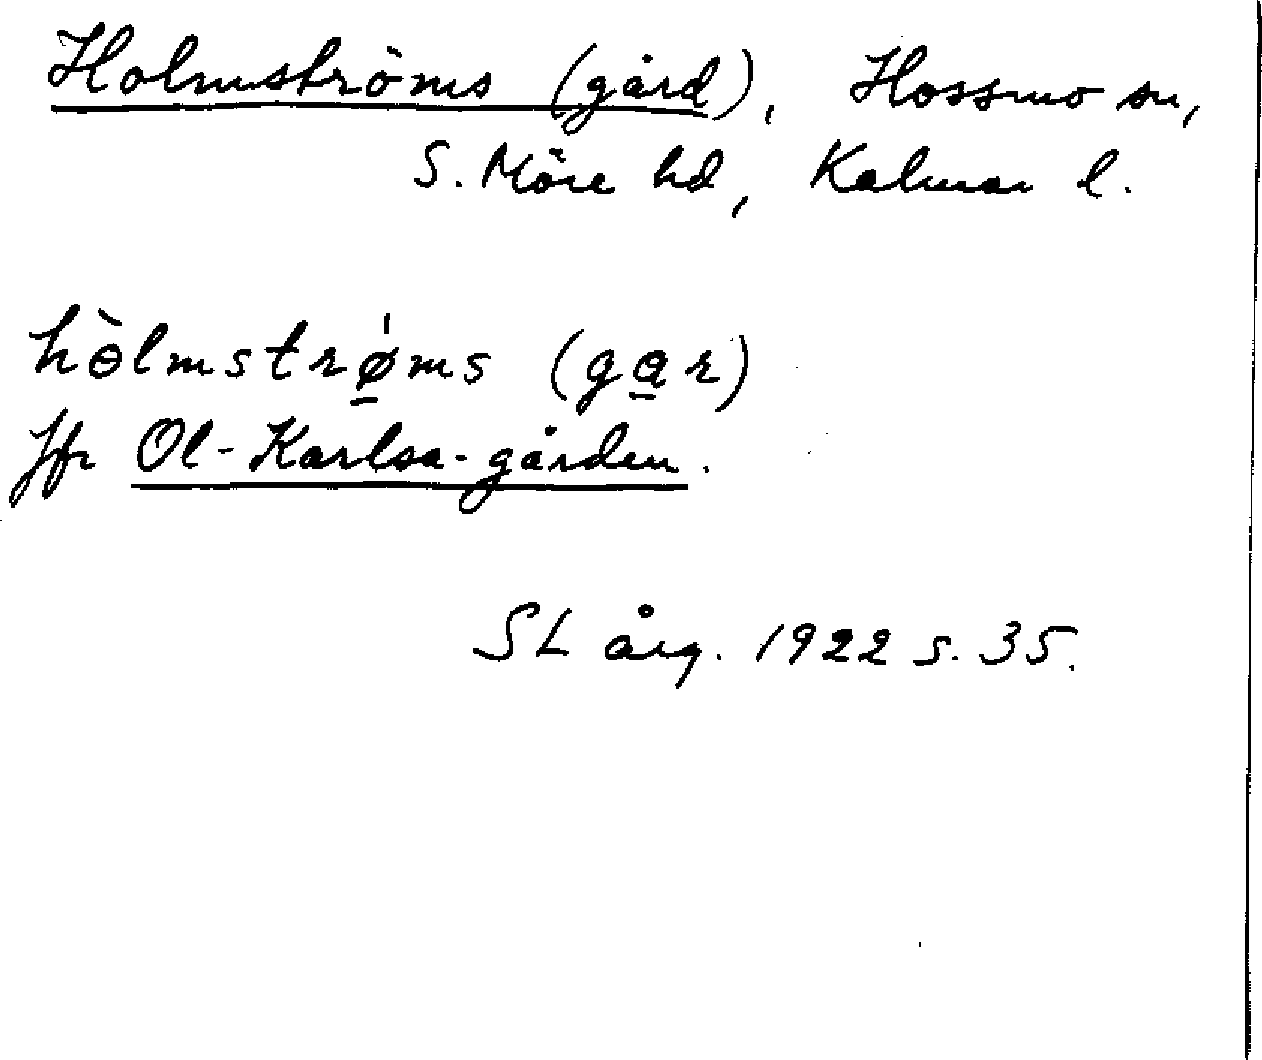 Holmströms (gård), Hossmo sn,
S. Möre hd, Kalmar l.
hɵ̀lmstrǿ̱ms (ga̱r)
Jfr Ol-Karlsa-gården.
SL årg. 1922 s. 35.